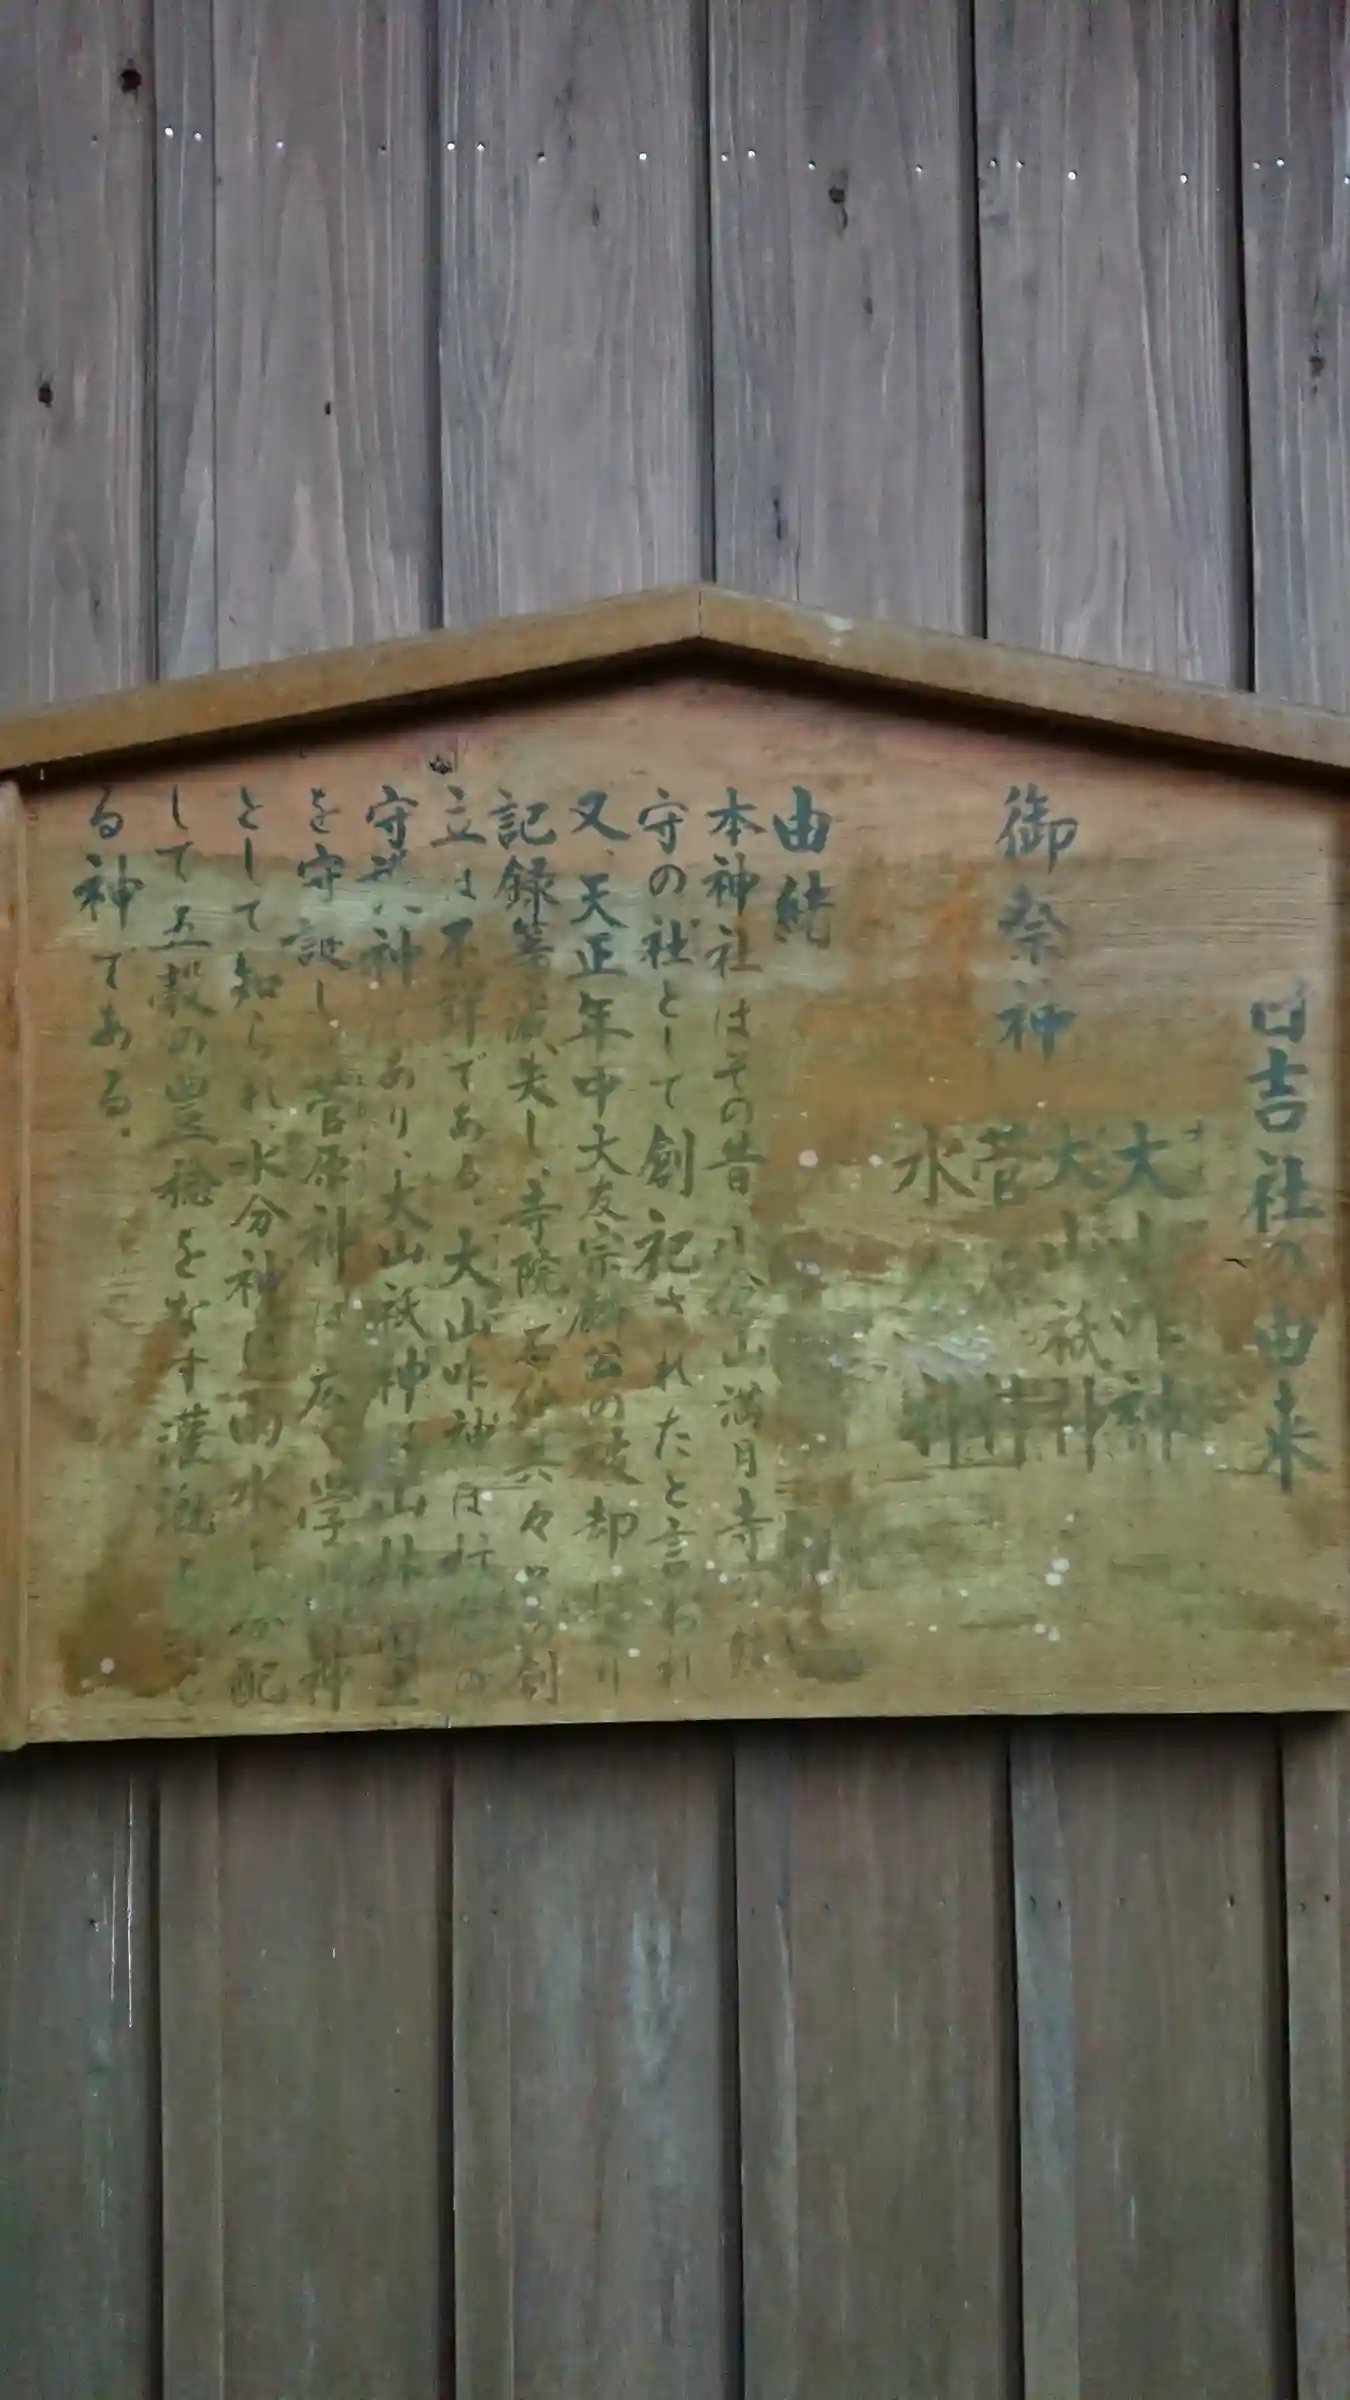 日吉社の由来
御祭神
大山咋神
大山祇神
菅原神
水分神
由緒
本神社はその昔、山満月寺の鎮
守の社として創祀されたと言われ
又、天正年中大友宗麟公の破却により
記録等滅失し、寺院、石仏共々の創
立は不詳である。大山咋神は
守護神であり、大山祇神は山林
を守護し、菅原神は広く学神
として知られ、水分神は雨水を分配
して五穀の豊穣をなす灌漑
る神である。